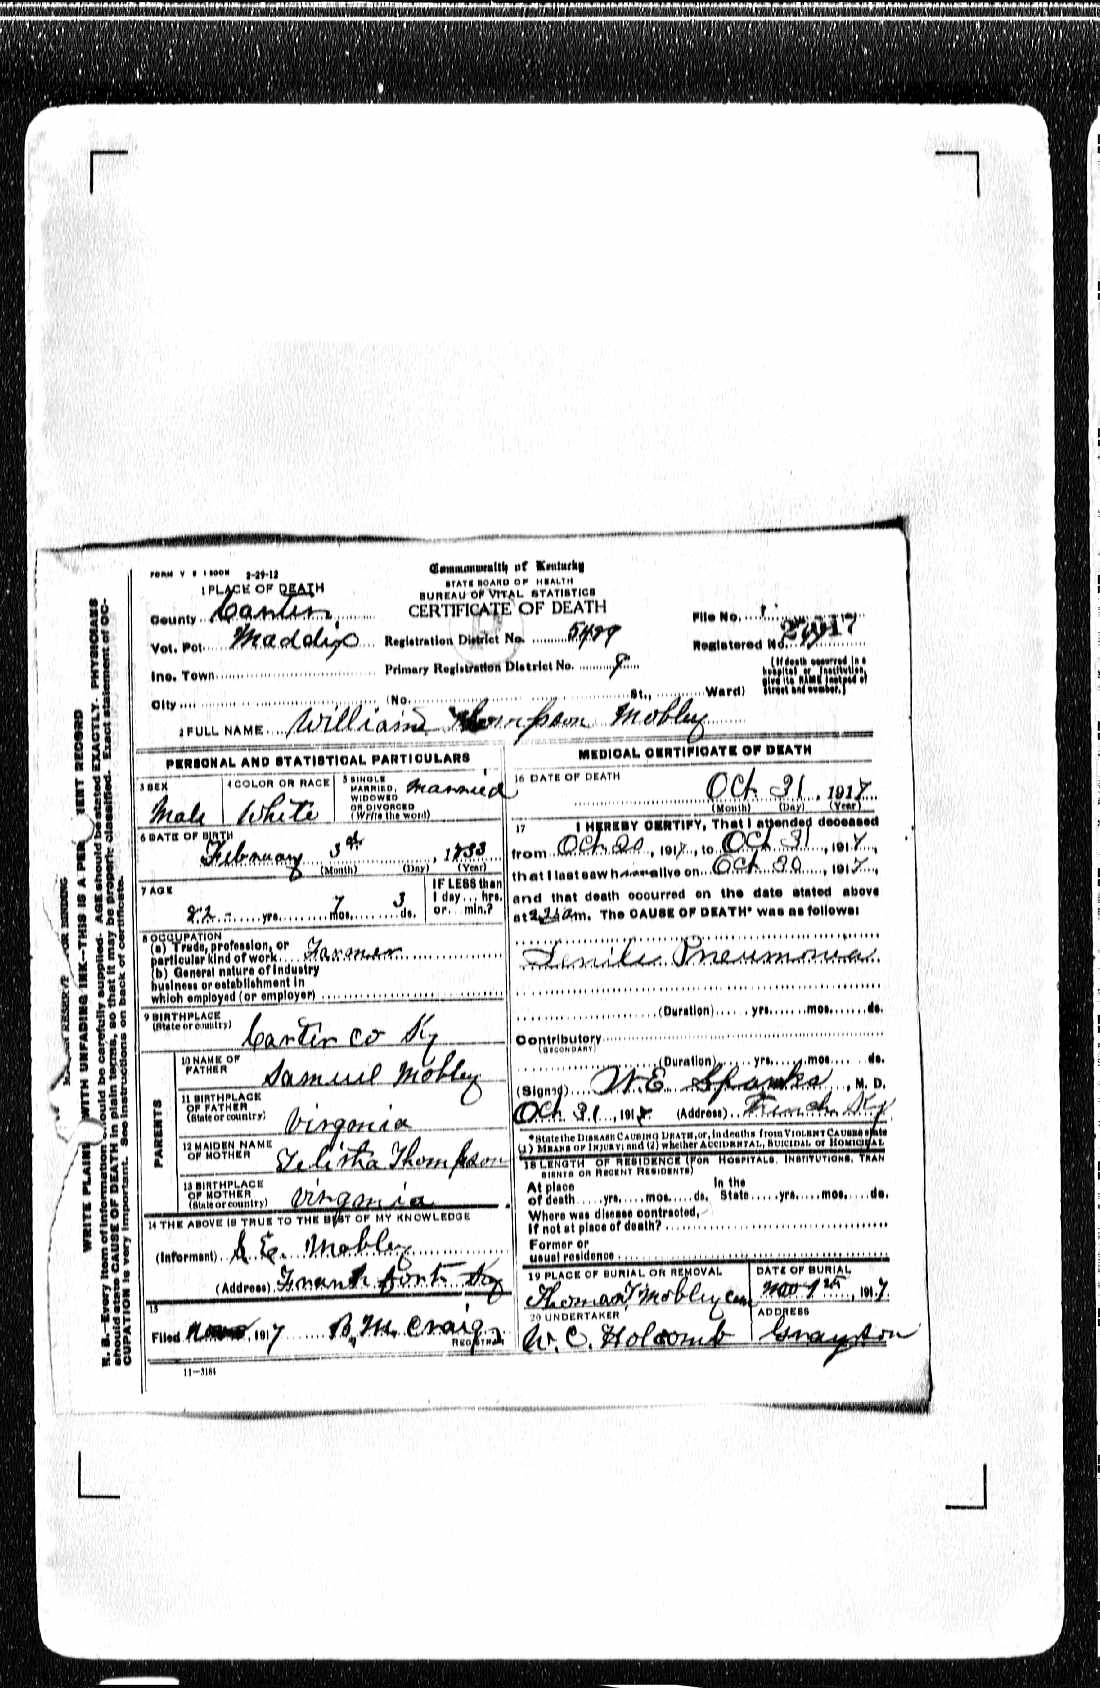 FORM V S 1 500M 2-29-12
Commonwealth of Kentucky
STATE BOARD OF HEALTH
BUREAU OF VITAL STATISTICS
CERTIFICATE OF DEATH
1 PLACE OF DEATH
County Carter
Vot. Pct. Maddix
Inc. Town
City
Registration District No. 5499
Primary Registration District No. 8
File No.
Registered No.
(No. St., Ward)
(If death occurred in a
hospital or institution,
give its NAME instead of
street and number.)
2 FULL NAME William Thompson Mobley
PERSONAL AND STATISTICAL PARTICULARS
3 SEX
Male
4 COLOR OR RACE
White
5 SINGLE
MARRIED,
WIDOWED
OR DIVORCED
(Write the word)
Married
6 DATE OF BIRTH
February 3rd, 1833
(Month) (Day) (Year)
7 AGE
yrs. 7 mos. 3 ds.
IF LESS than
1 day... hrs.
or... min.?
8 OCCUPATION
(a) Trade, profession, or
particular kind of work Farmer
(b) General nature of industry
business or establishment in
which employed (or employer)
9 BIRTHPLACE
(State or country)
Carter co Ky
PARENTS
10 NAME OF
FATHER
Samuel Mobley
11 BIRTHPLACE
OF FATHER
(State or country)
Virgonia
12 MAIDEN NAME
OF MOTHER
Telitha Thompson
13 BIRTHPLACE
OF MOTHER
(State or country)
Virgonia
14 THE ABOVE IS TRUE TO THE BEST OF MY KNOWLEDGE
(Informant) S E. Mobley
(Address) Frankfort Ky
15
Filed , 1917 B. M. Craig
REGISTRAR
11—3184
MEDICAL CERTIFICATE OF DEATH
16 DATE OF DEATH
Oct 31, 1917
(Month) (Day) (Year)
17 I HEREBY CERTIFY, That I attended deceased
from Oct 20, 1917, to Oct 31, 1917,
that I last saw h alive on Oct 30, 1917,
and that death occurred on the date stated above
at m. The CAUSE OF DEATH* was as follows:
Senile Pneumonia
(Duration) yrs. mos. ds.
Contributory
(SECONDARY)
(Duration) yrs. mos. ds.
(Signed) W E Sparks, M. D.
Oct 31, 1917 (Address) French Ky
*State the DISEASE CAUSING DEATH, or, in deaths from VIOLENT CAUSES state
(1) MEANS OF INJURY; and (2) whether ACCIDENTAL, SUICIDAL OR HOMICIDAL
18 LENGTH OF RESIDENCE (FOR HOSPITALS, INSTITUTIONS, TRAN
SIENTS OR RECENT RESIDENTS)
At place In the
of death yrs. mos. ds. State yrs. mos. ds.
Where was disease contracted,
if not at place of death?
Former or
usual residence
19 PLACE OF BURIAL OR REMOVAL
Thomas T Mobley Cem
DATE OF BURIAL
Nov 1st, 1917
20 UNDERTAKER
W. C. Holcomb
ADDRESS
Grayson
N. B.—Every item of information should be carefully supplied. AGE should be stated EXACTLY. PHYSICIANS
should state CAUSE OF DEATH in plain terms, so that it may be properly classified. Exact statement of OC-
CUPATION is very important. See instructions on back of certificate.
WITH UNFADING INK—THIS IS A
RECORD